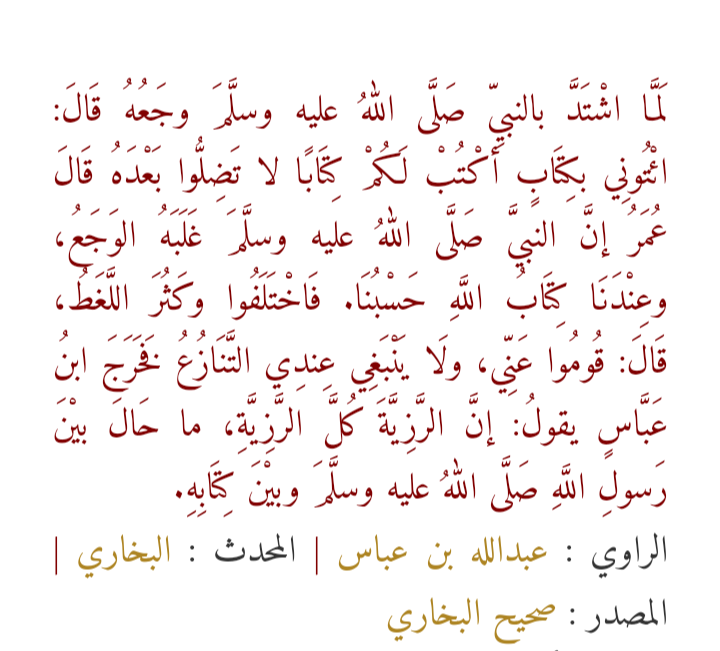 لَمَّا اشْتَدَّ بالنبيِّ صَلَّى اللهُ عليه وسلَّمَ وجَعُهُ قَالَ:
ائْتُونِي بكِتَابٍ أَكْتُبْ لَكُمْ كِتَابًا لا تَضِلُّوا بَعْدَهُ قَالَ
عُمَرُ إنَّ النبيَّ صَلَّى اللهُ عليه وسلَّمَ غَلَبَهُ الوَجَعُ،
وعِنْدَنَا كِتَابُ اللَّهِ حَسْبُنَا. فَاخْتَلَفُوا وكَثُرَ اللَّغَطُ،
قَالَ: قُومُوا عَنِّي، ولَا يَنْبَغِي عِندِي التَّنَازُعُ فَخَرَجَ ابنُ
عَبَّاسٍ يقولُ: إنَّ الرَّزِيَّةَ كُلَّ الرَّزِيَّةِ، ما حَالَ بيْنَ
رَسولِ اللَّهِ صَلَّى اللهُ عليه وسلَّمَ وبيْنَ كِتَابِهِ.
الراوي : عبدالله بن عباس | المحدث : البخاري |
المصدر : صحيح البخاري